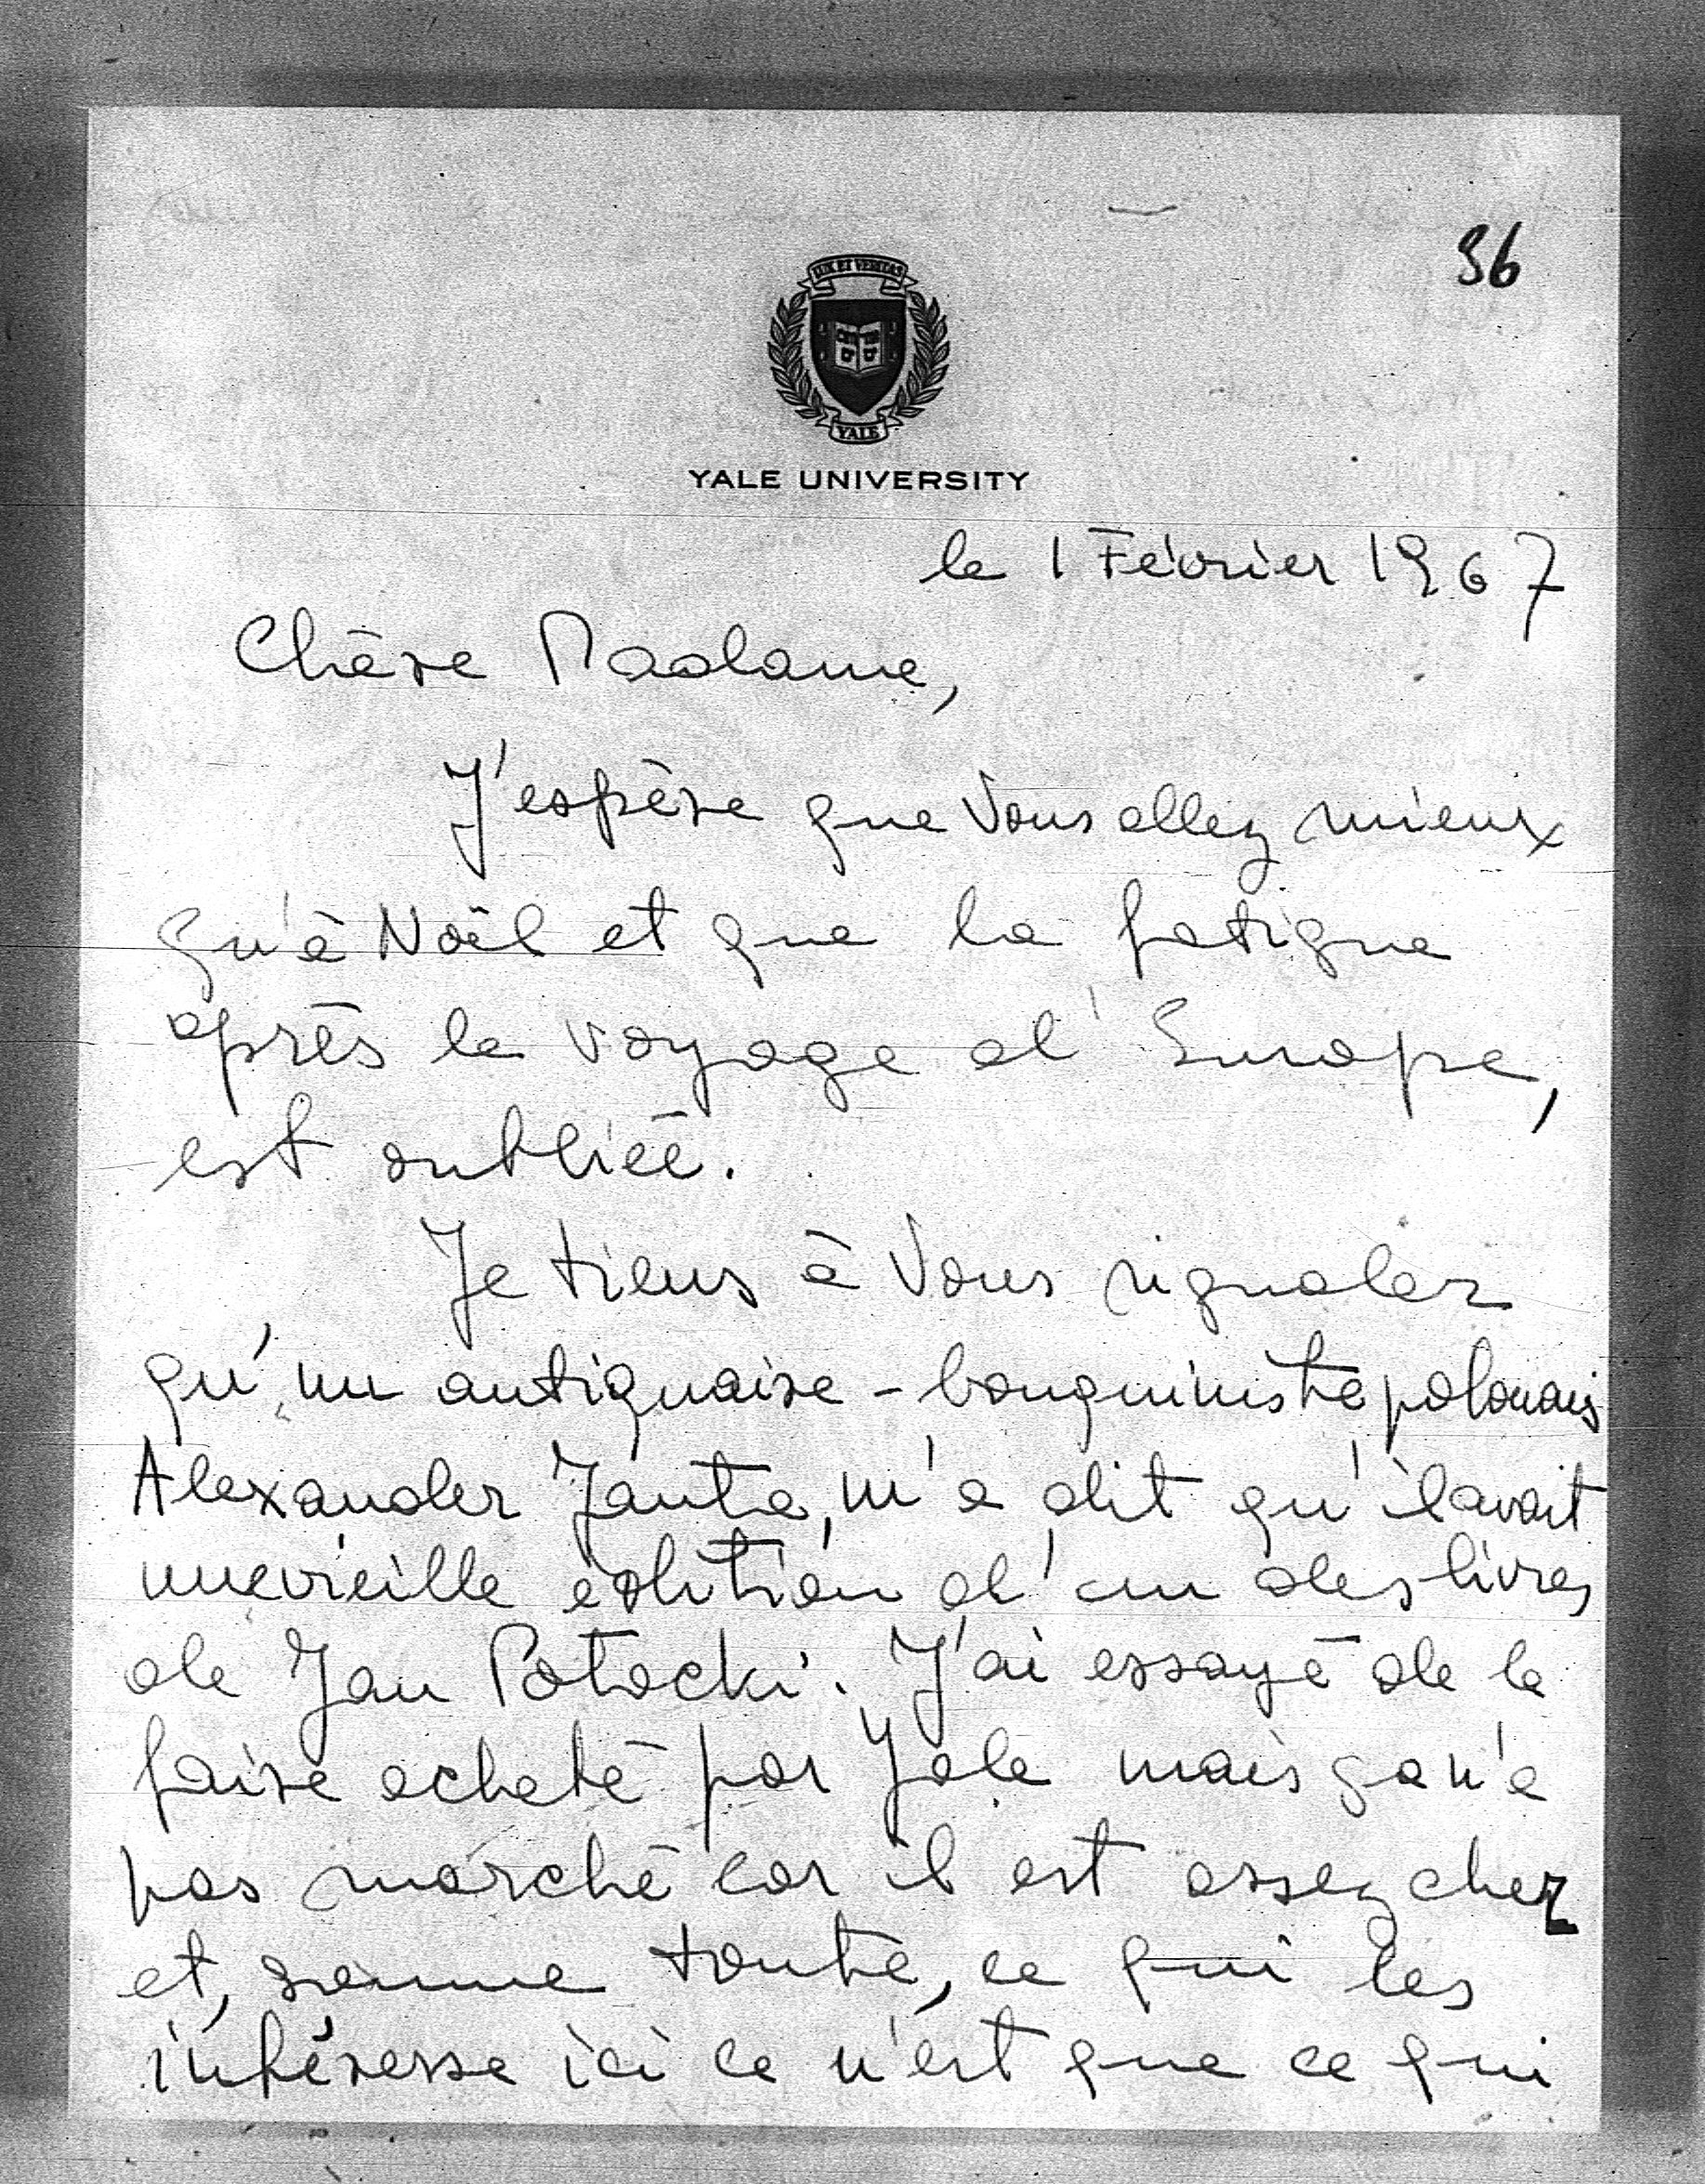 36
LUX ET VERITAS
YALE
YALE UNIVERSITY
le 1 Février 1967
Chère Madame,
J'espère que Vous allez mieux
qu'à Noël et que la fatigue
après le voyage d'Europe,
est oubliée.
Je tiens à Vous signaler
qu'un antiquaire - bouquiniste polonais
Alexander Janta, m'a dit qu'il avait
une vieille édition d'un des livres
de Jan Potocki. J'ai essayé de le
faire acheté par Yale mais ça n'a
pas marché car il est assez cher
et, somme toute, ce qui les
intéresse ici ce n'est que ce qui